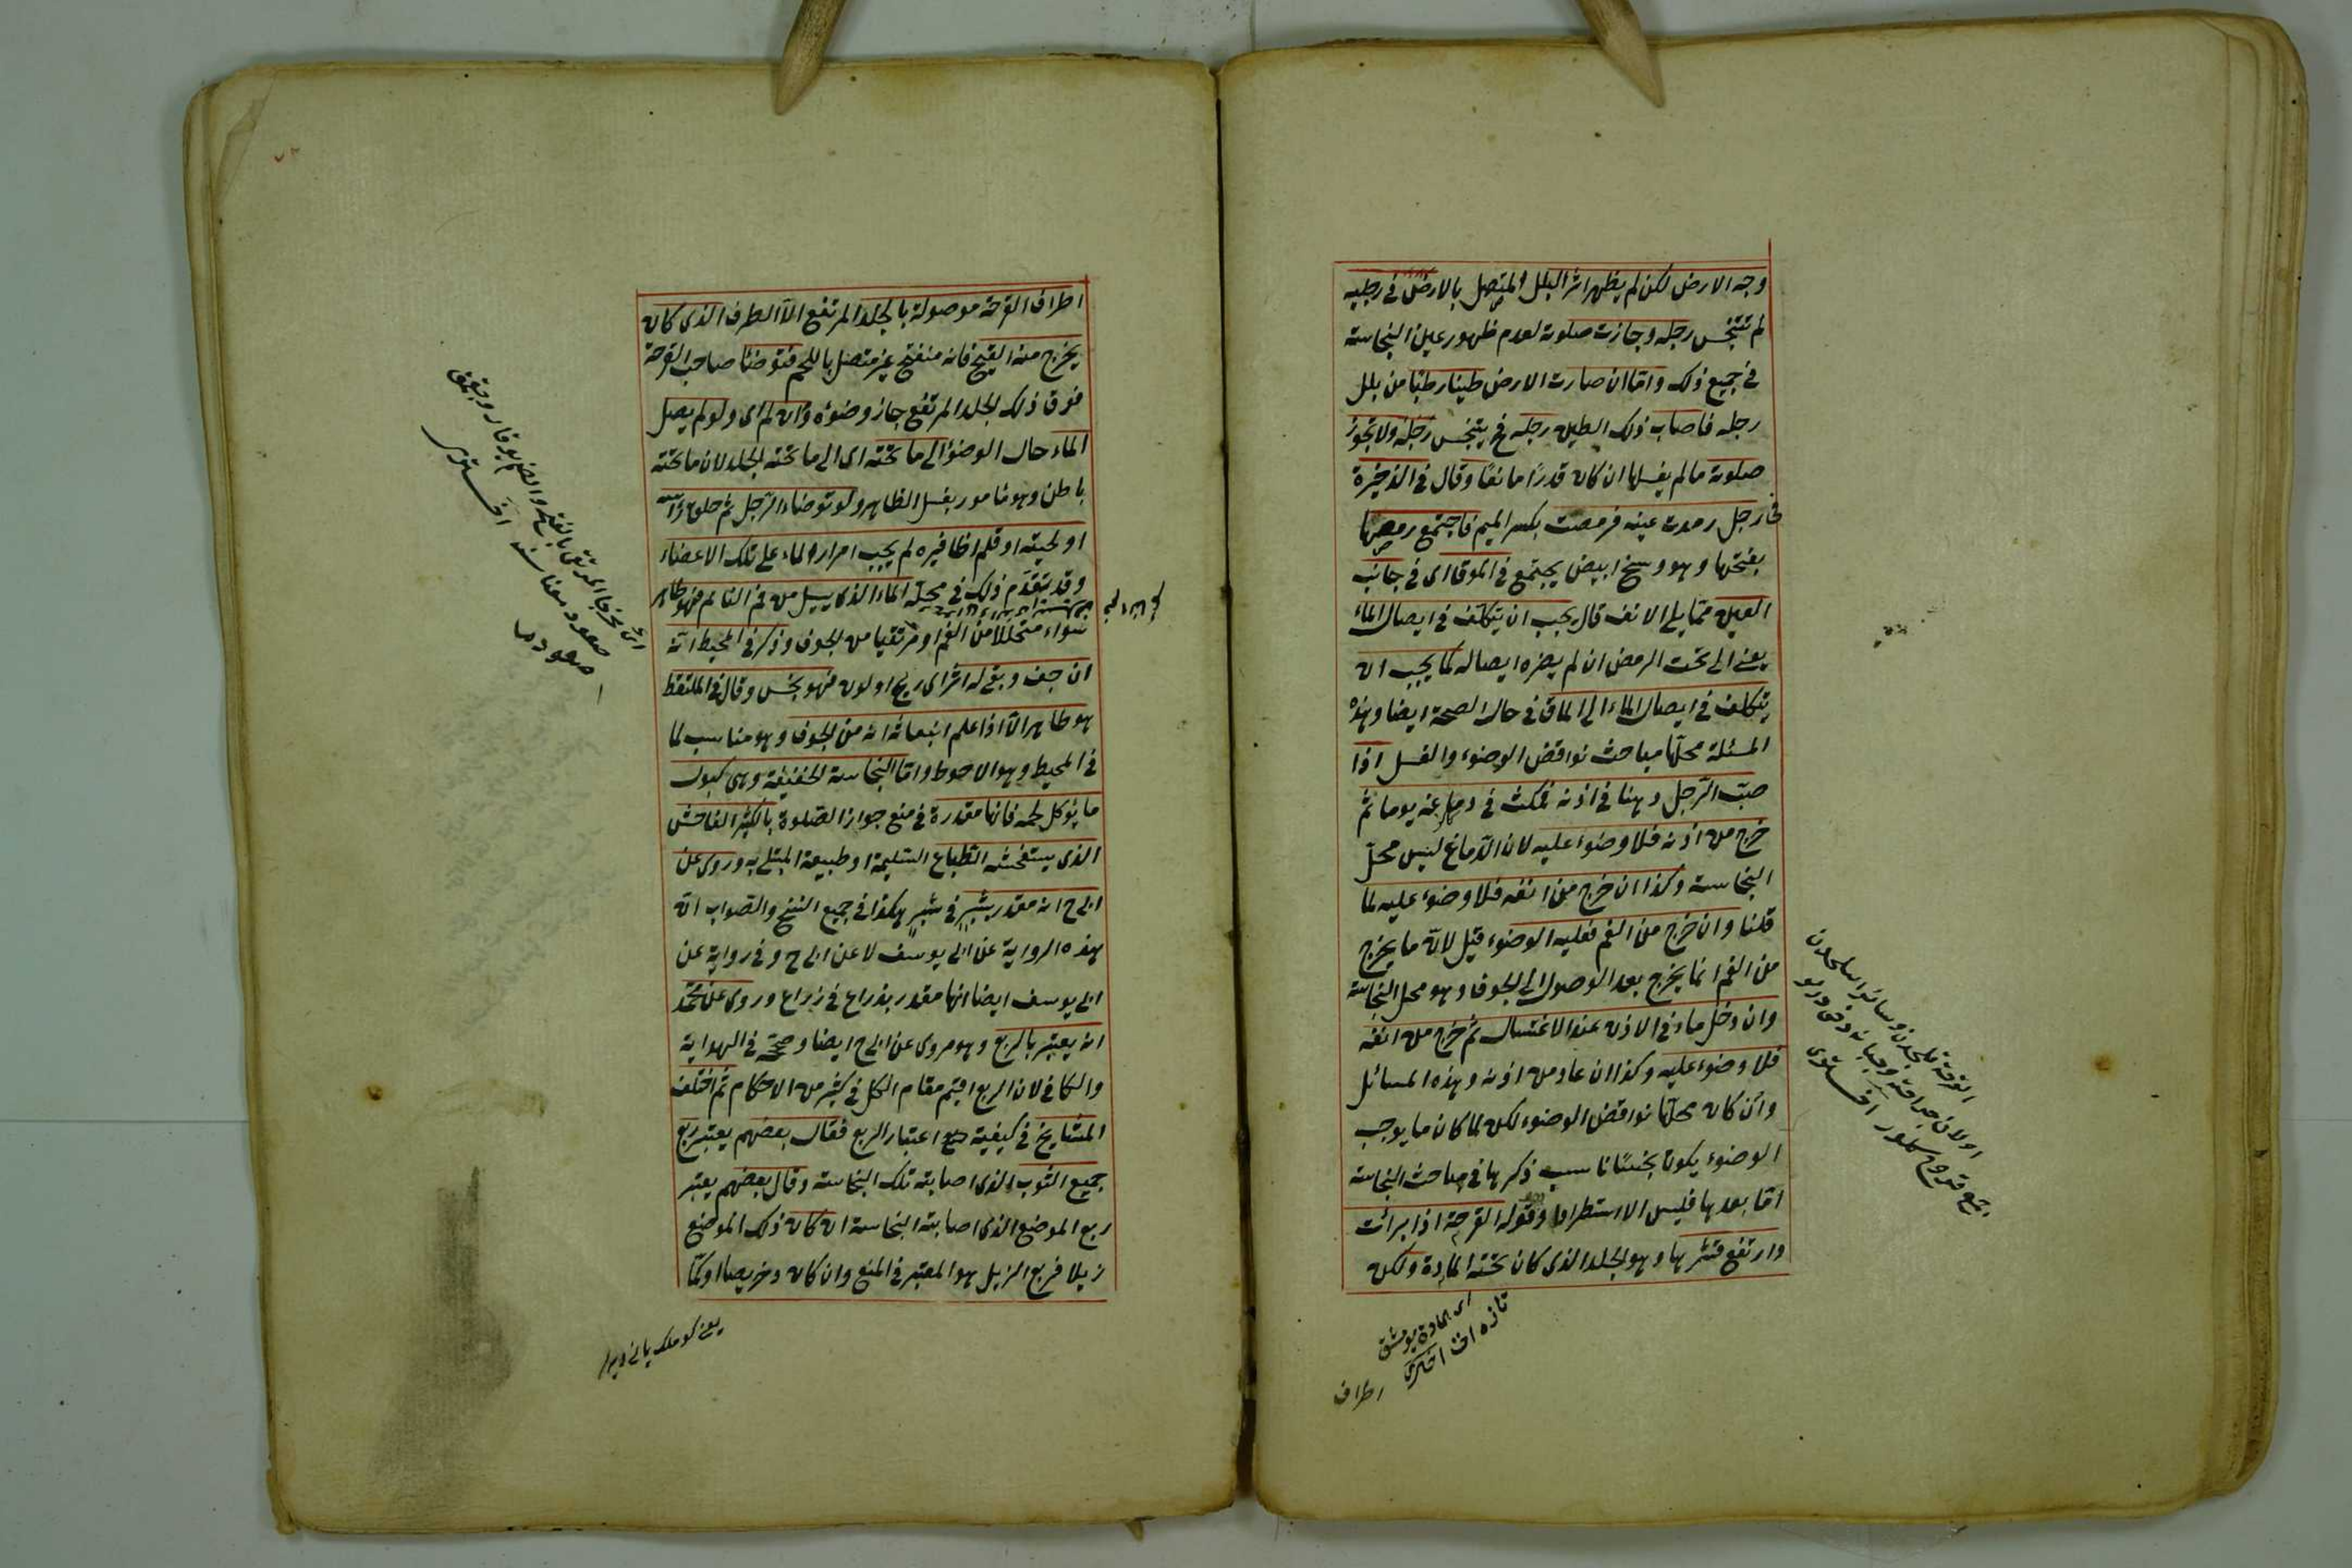 وجه الارض لكن لم يظهر اثر البلل المتصل بالارض فى رجليه
لم تتنجس رجله وجازت صلوته لعدم ظهور عين النجاسة
فى جميع ذلك واما ان صارت الارض طينا رطبا من بلل
رجله فاصاب ذلك الطين رجله فح يتنجس رجله ولا تجوز
صلوته ما لم يغسلها ان كان قدرًا مانعًا وقال فى الذخيرة
فى رجل رمدت عينه فرمصت بكسر الميم فاجتمع رمصها
بفتحها وهو وسخ ابيض يجتمع فى الموق اى فى جانب
العين مما يلى الانف قال يجب ان يتكلف فى ايصال الماء
يعنى الى تحت الرمص ان لم يضره ايصاله كما يجب ان
يتكلف فى ايصال الماء الى الماق فى حال الصحة ايضا وهذه
المسئلة محلها مباحث نواقض الوضوء والغسل اذا
صبّ الرّجل دهنا فى اذنه فمكث فى دماغه يوما ثم
خرج من اذنه فلا وضوء عليه لان الدماغ ليس محلّ
النجاسة وكذا ان خرج من انفه فلا وضوء عليه لما
قلنا وان خرج من الفم فعليه الوضوء قيل لانه ما يخرج
من الفم انما يخرج بعد الوصول الى الجوف وهو محل النجاسة
وان دخل ماء فى الاذن عند الاغتسال ثم خرج من انفه
فلا وضوء عليه وكذا ان عاد من اذنه وهذه المسائل
وان كان محلها نواقض الوضوء لكن لما كان ما يوجب
الوضوء يكون نجسًا ناسب ذكرها فى مباحث النجاسة
امّا بعدها فليس الا استطرادا وقوله القرحة اذا برأت
وارتفع قشرها وهو الجلد الذى كان تحته المادة ولكن
اطراف
اطراف القرحة موصولة بالجلد المرتفع الا الطرف الذى كان
يخرج منه القيح فانه منفتح غير متصل باللحم فتوضأ صاحب القرحة
فوق ذلك الجلد المرتفع جاز وضوؤه وان لم اى ولو لم يصل
الماء حال الوضوء الى ما تحته اى الى ما تحته الجلد لان ما تحته
باطن وهو مأمور بغسل الظاهر ولو توضاء الرّجل ثم حلق رأسه
او لحيته او قلم اظافيره لم يجب امرار الماء على تلك الاعضاء
وقد تقدّم ذلك فى محله الماء الذى يسيل من فم النائم فهو طاهر
سواء متحللًا من الفم او مرتقيا من الجوف وذكر فى المحيط انه
ان جف وبقى له اثر اى ريح او لون فهو نجس وقال فى الملتقط
هو طاهر الا اذا علم انبعاثه انه من الجوف وهو مناسب لما
فى المحيط وهو الاحوط واما النجاسة الخفيفة وهى كبول
ما يؤكل لحمه فانها مقدرة فى منع جواز الصّلوة بالكثير الفاحش
الذى يستفحشه الطباع السّليمة او طبيعة المبتلى به وروى عن
ابى ح انه مقدر بشبر فى شبر هكذا فى جميع النسخ والصّواب انه
هذه الرواية عن ابى يوسف لا عن ابى ح وفى رواية عن
ابى يوسف ايضا انها مقدر بذراع فى ذراع وروى عن محمّد
انه يعتبر بالربع وهو مروى عن ابى ح ايضا وصححه فى الهداية
والكافى لان الربع اقيم مقام الكل فى كثير من الاحكام ثم اختلف
المشايخ فى كيفية اعتبار الربع فقال بعضهم يعتبر ربع
جميع الثوب الذى اصابته تلك النجاسة وقال بعضهم يعتبر
ربع الموضع الذى اصابته النجاسة ان كان ذلك الموضع
ذيلا فربع الذيل هو المعتبر فى المنع وان كان دخريصا او كمّا